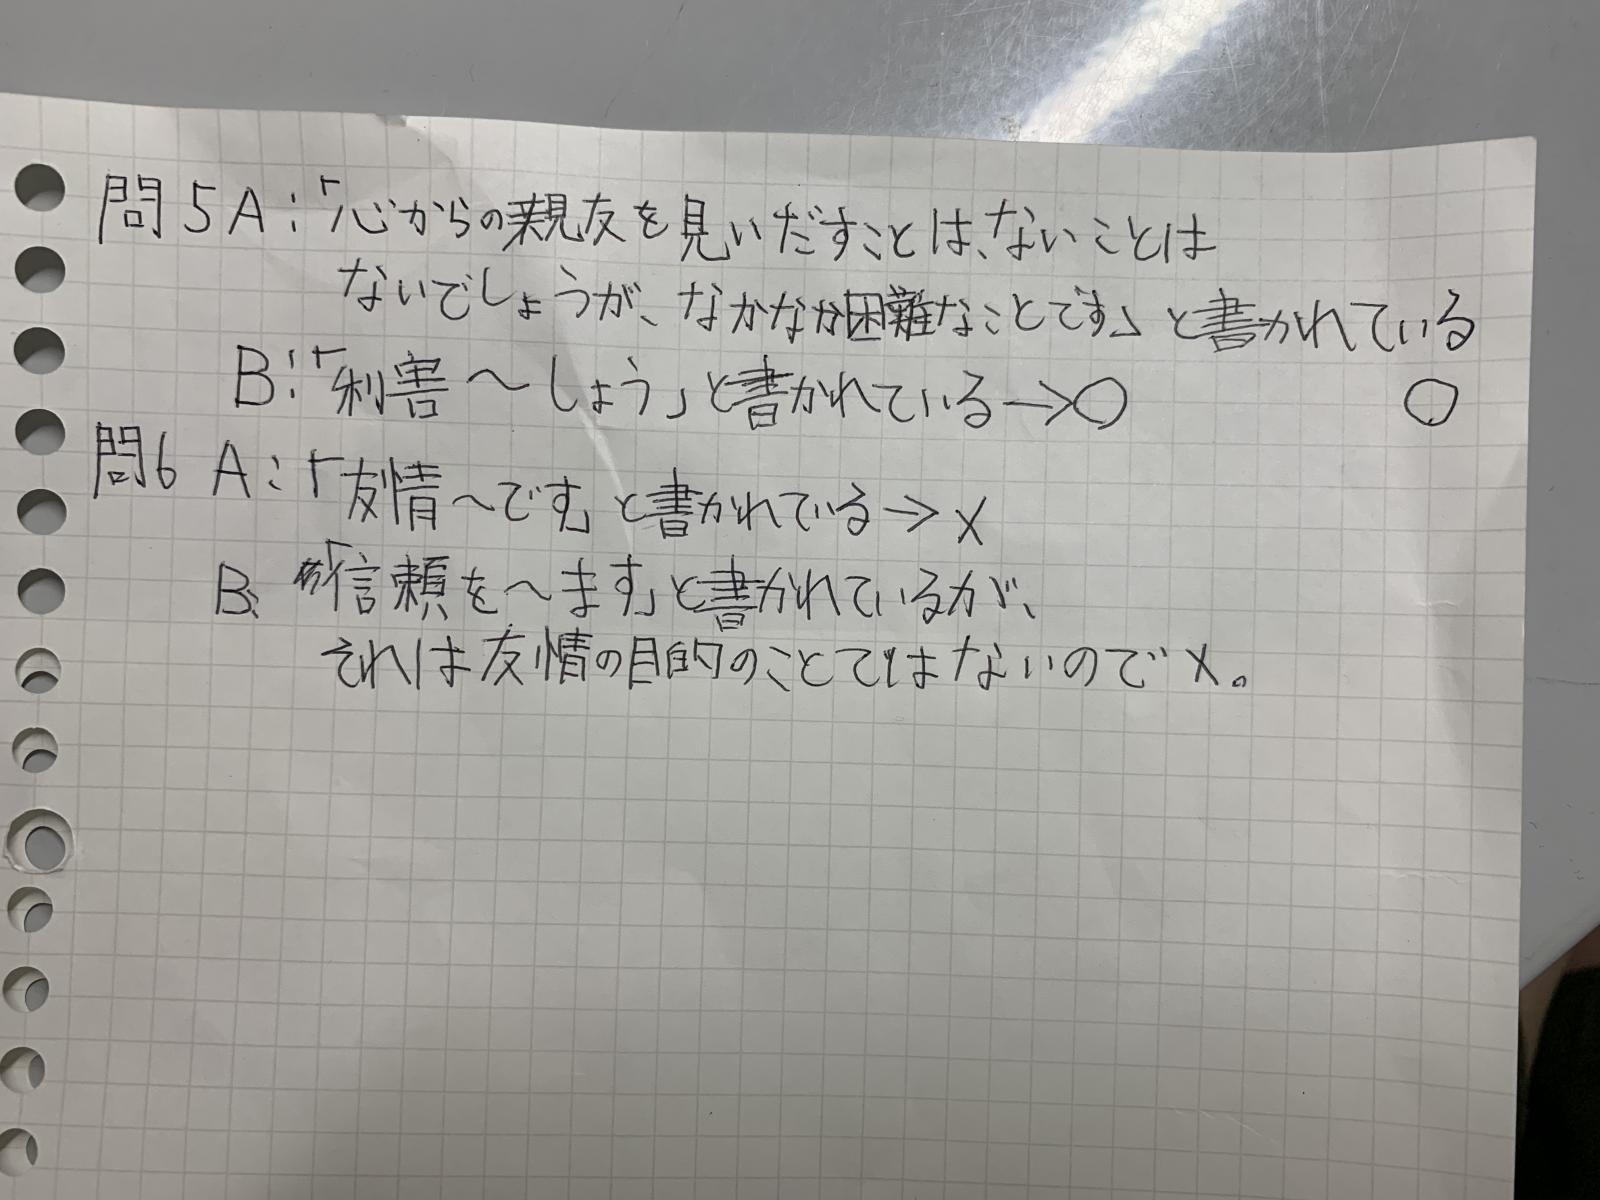 問5A:「心からの親友を見いだすことは、ないことは
ないでしょうが、なかなか困難なことです」と書かれている
B:「利害〜しょう」と書かれている→○ ○
問6 A:「友情〜です」と書かれている→×
B:「信頼を〜ます」と書かれているが、
それは友情の目的のことではないので×。